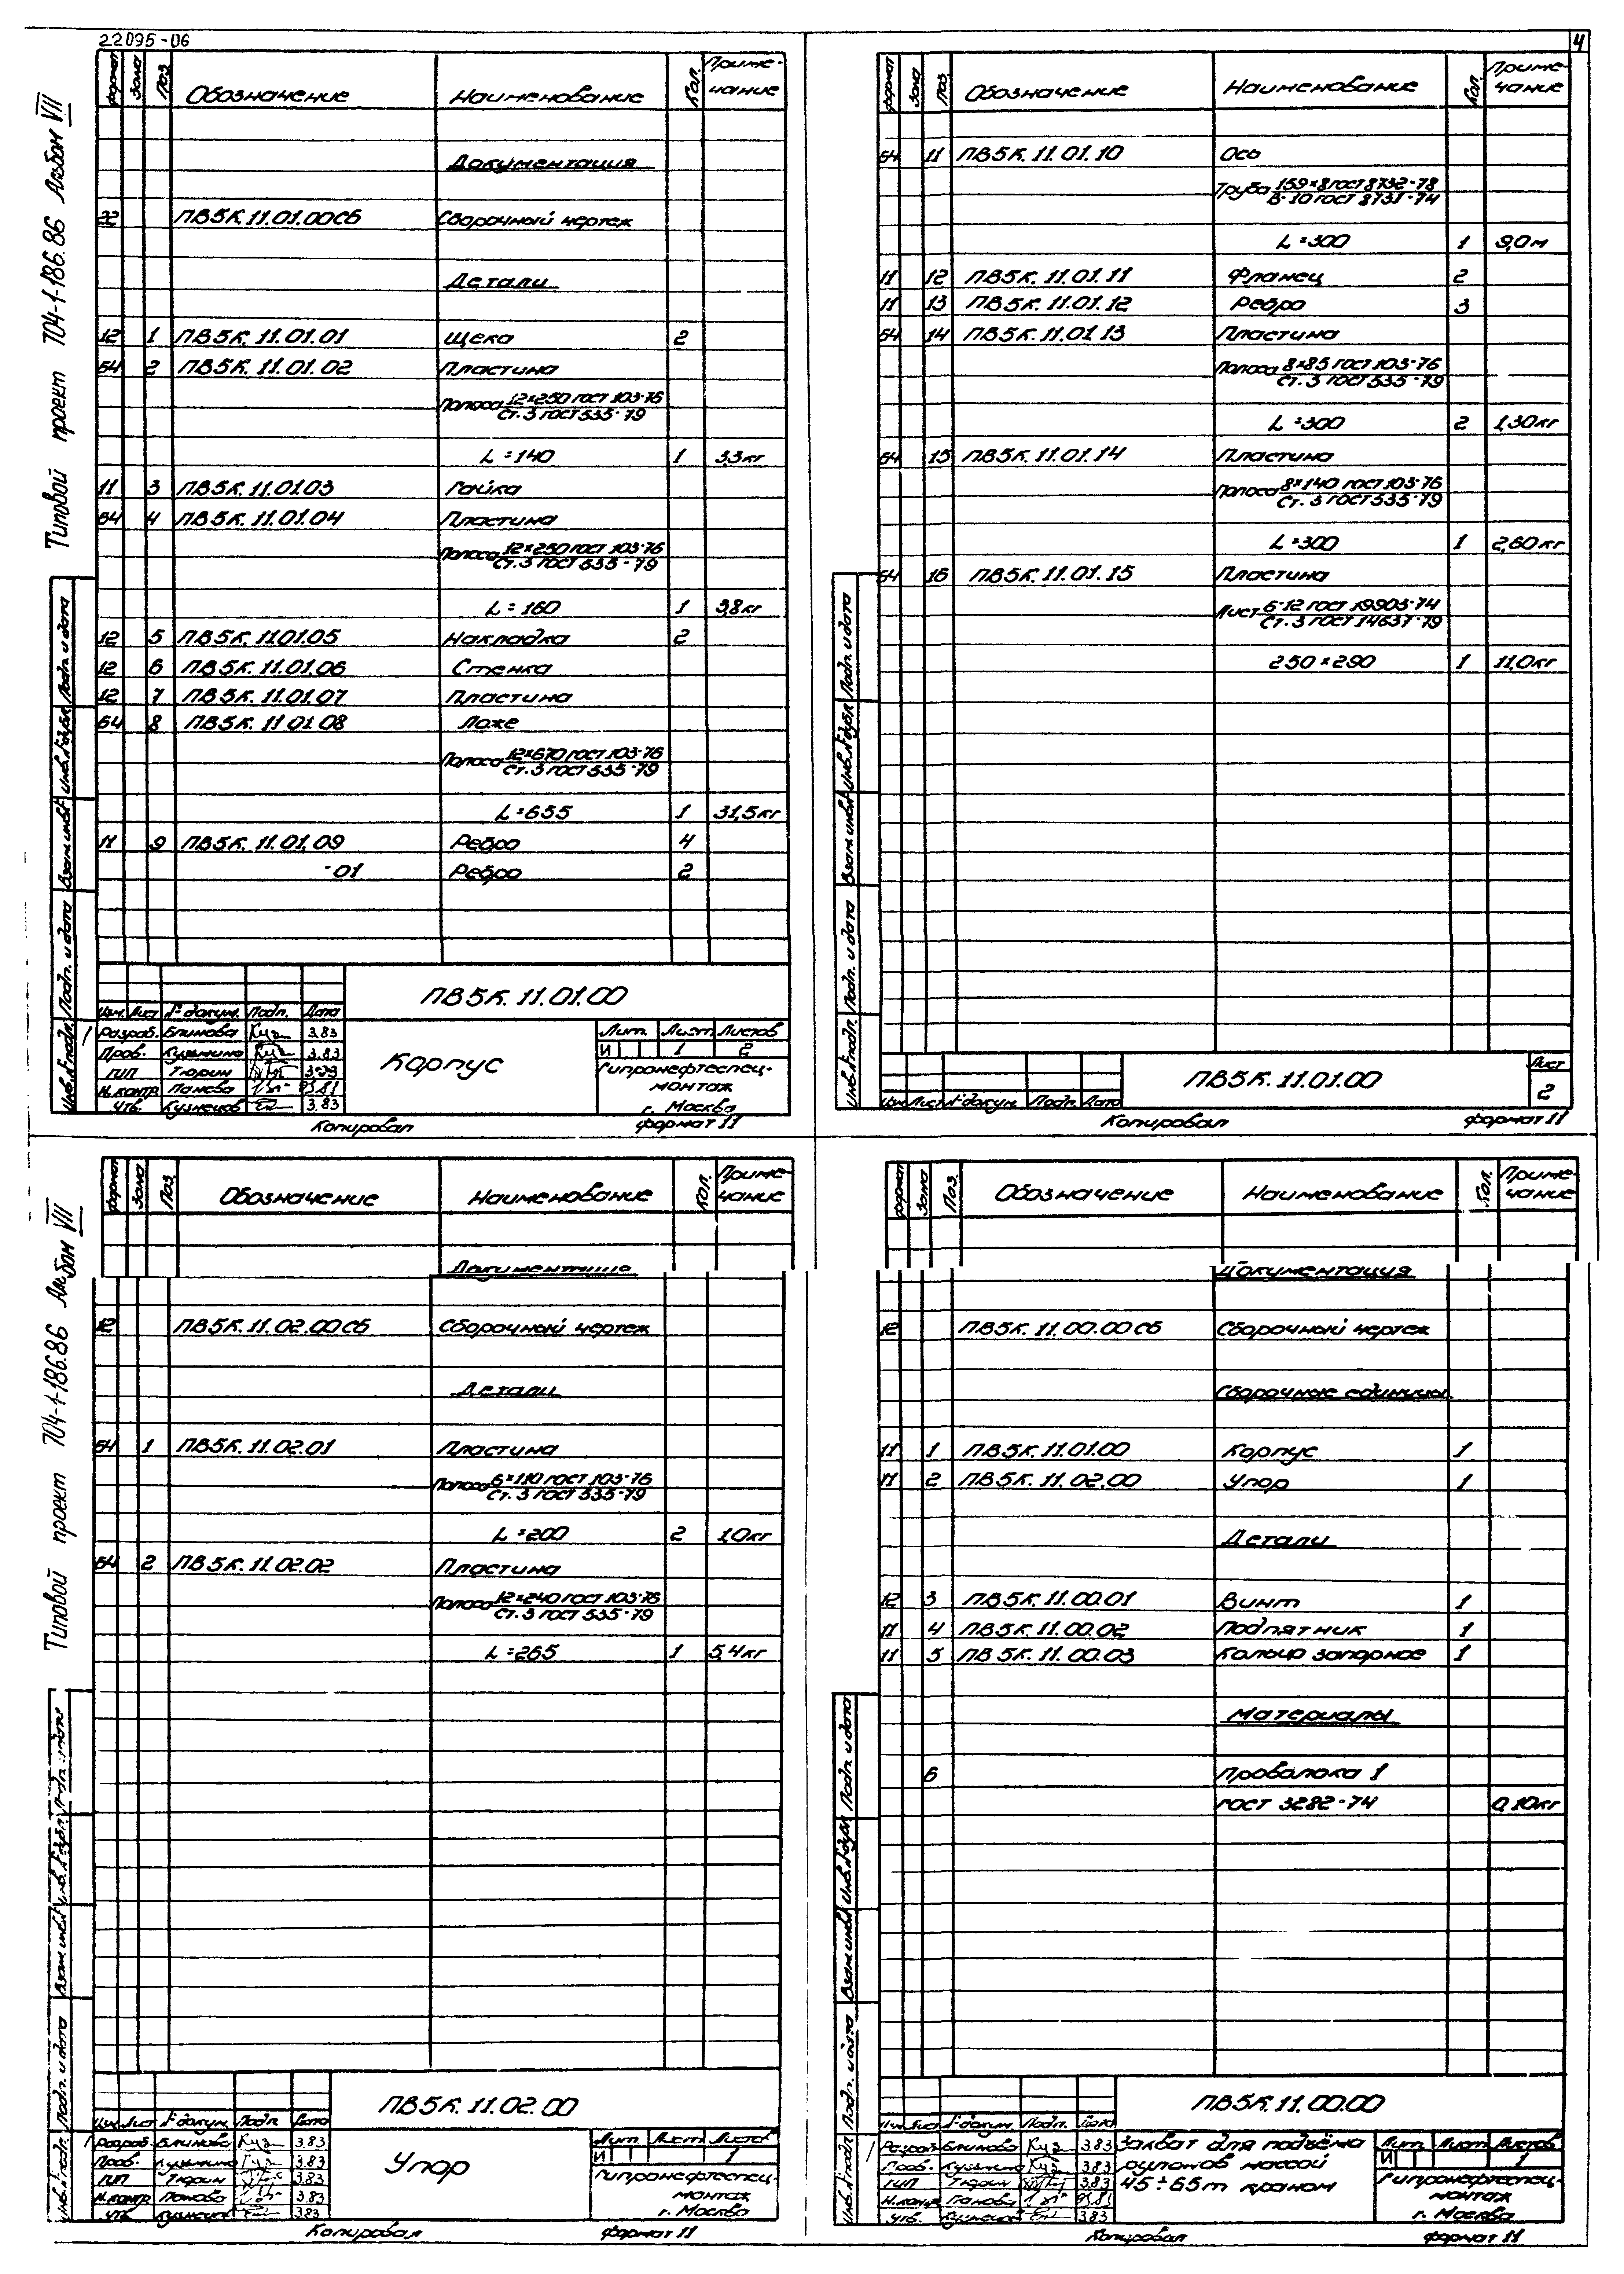 22095-06
4
Типовой проект 704-1-186.86 Альбом VII
Формат Зона Поз. Обозначение Наименование Кол. Приме-
чание
Документация
22 ПВ5К.11.01.00СБ Сборочный чертеж
Детали
12 1 ПВ5К.11.01.01 Щека 2
Б4 2 ПВ5К.11.01.02 Пластина
Полоса 12×250 ГОСТ 103-76
Ст.3 ГОСТ 535-79
L=140 1 3,3кг
11 3 ПВ5К.11.01.03 Гайка
Б4 4 ПВ5К.11.01.04 Пластина
Полоса 12×250 ГОСТ 103-76
Ст.3 ГОСТ 535-79
L=160 1 3,8кг
12 5 ПВ5К.11.01.05 Накладка 2
12 6 ПВ5К.11.01.06 Стенка
12 7 ПВ5К.11.01.07 Пластина
Б4 8 ПВ5К.11.01.08 Ложе
Полоса 12×670 ГОСТ 103-76
Ст.3 ГОСТ 535-79
L=655 1 31,5кг
11 9 ПВ5К.11.01.09 Ребро 4
-01 Ребро 2
Инв.№подл. Подп. и дата Взам.инв.№ Инв.№дубл. Подп. и дата
ПВ5К.11.01.00
Изм. Лист № докум. Подп. Дата
Разраб. Блинова 3.83
Пров. Кузьмина 3.83
ГИП Тюрин
Н.контр. Панова
Утв. Кузнецов 3.83
Корпус
Лит. Лист Листов
И 1 2
Гипронефтеспец-
монтаж
г. Москва
Копировал Формат 11
Формат Зона Поз. Обозначение Наименование Кол. Приме-
чание
Б4 11 ПВ5К.11.01.10 Ось
Труба 159×8 ГОСТ 8732-78
В-10 ГОСТ 8731-74
L=300 1 9,0м
11 12 ПВ5К.11.01.11 Фланец 2
11 13 ПВ5К.11.01.12 Ребро 3
Б4 14 ПВ5К.11.01.13 Пластина
Полоса 8×85 ГОСТ 103-76
Ст.3 ГОСТ 535-79
L=300 2 1,30кг
Б4 15 ПВ5К.11.01.14 Пластина
Полоса 8×140 ГОСТ 103-76
Ст.3 ГОСТ 535-79
L=300 1 2,60кг
Б4 16 ПВ5К.11.01.15 Пластина
Лист Б-12 ГОСТ 19903-74
Ст.3 ГОСТ 14637-79
250×290 1 11,0кг
Инв.№подл. Подп. и дата Взам.инв.№ Инв.№дубл. Подп. и дата
Изм. Лист № докум. Подп. Дата
ПВ5К.11.01.00
Лист
2
Копировал Формат 11
Типовой проект 704-1-186.86 Альбом VII
Формат Зона Поз. Обозначение Наименование Кол. Приме-
чание
Документация
12 ПВ5К.11.02.00СБ Сборочный чертеж
Детали
Б4 1 ПВ5К.11.02.01 Пластина
Полоса 6×110 ГОСТ 103-76
Ст.3 ГОСТ 535-79
L=200 2 1,0кг
Б4 2 ПВ5К.11.02.02 Пластина
Полоса 12×240 ГОСТ 103-76
Ст.3 ГОСТ 535-79
L=265 1 5,4кг
Инв.№подл. Подп. и дата Взам.инв.№ Инв.№дубл. Подп. и дата
ПВ5К.11.02.00
Изм. Лист № докум. Подп. Дата
Разраб. Блинова 3.83
Пров. Кузьмина 3.83
ГИП Тюрин 3.83
Н.контр. Панова 3.83
Утв. Кузнецов 3.83
Упор
Лит. Лист Листов
И 1
Гипронефтеспец-
монтаж
г. Москва
Копировал Формат 11
Формат Зона Поз. Обозначение Наименование Кол. Приме-
чание
Документация
12 ПВ5К.11.00.00СБ Сборочный чертеж
Сборочные единицы
11 1 ПВ5К.11.01.00 Корпус 1
11 2 ПВ5К.11.02.00 Упор 1
Детали
12 3 ПВ5К.11.00.01 Винт 1
11 4 ПВ5К.11.00.02 Подпятник 1
11 5 ПВ5К.11.00.03 Кольцо запорное 1
Материалы
6 Проволока 1
ГОСТ 3282-74 0,10кг
Инв.№подл. Подп. и дата Взам.инв.№ Инв.№дубл. Подп. и дата
ПВ5К.11.00.00
Изм. Лист № докум. Подп. Дата
Разраб. Блинова 3.83
Пров. Кузьмина 3.83
ГИП Тюрин 3.83
Н.контр. Панова
Утв. Кузнецов 3.83
Захват для подъёма
рулонов массой
45÷65т краном
Лит. Лист Листов
И 1
Гипронефтеспец-
монтаж
г. Москва
Копировал Формат 11